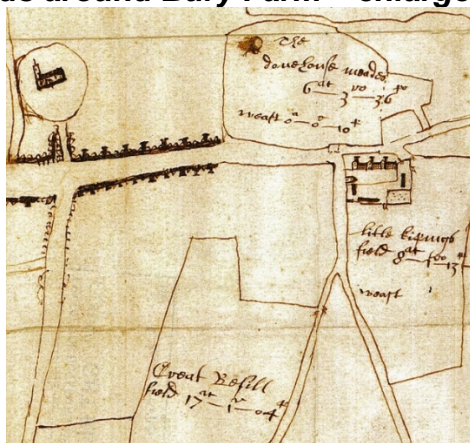 de around Bury Farm - enlarge
The
dovehouse meadow
6 at 3 ro 36 po
weast 0 a 0 r 10 p
little kipings
field 8 at 1 ro 13 p
weast
Great Resill
field 17 at 1 r 04 p